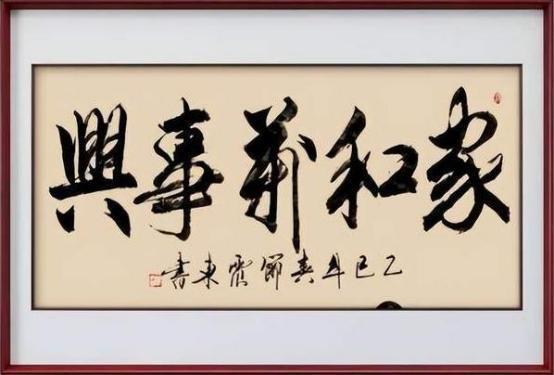 家和萬事興
乙巳年春節東書